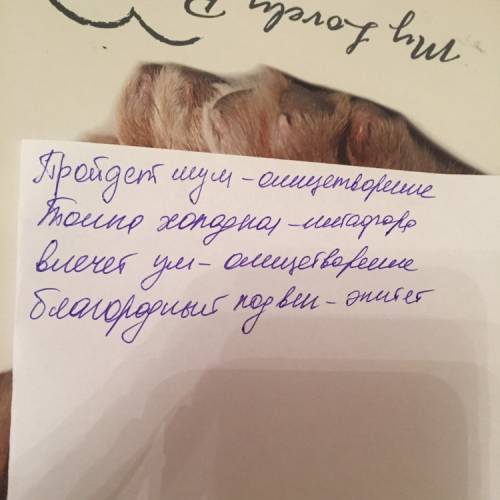 My Lovely D
Пройдет шум - олицетворение
Толпа холодная - метафора
влечет ум - олицетворение
благородный подвиг - эпитет